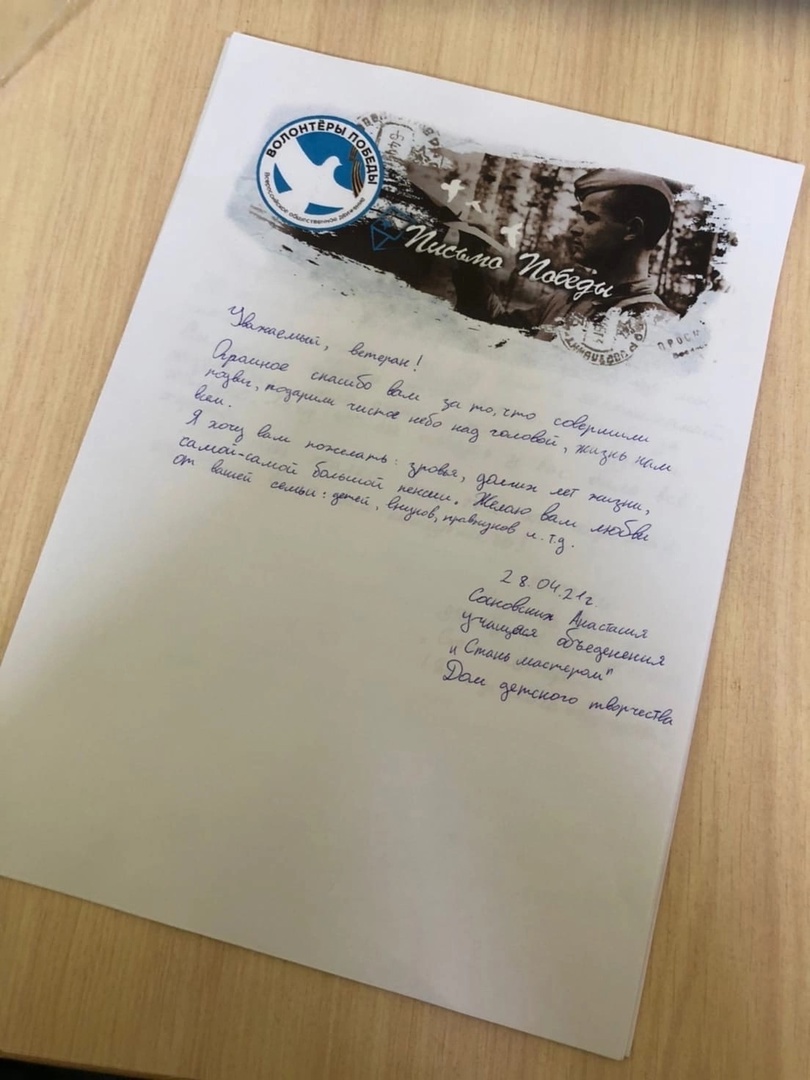 ВОЛОНТЁРЫ ПОБЕДЫ
Всероссийское общественное движение
Письмо Победы
Уважаемый, ветеран!
Огромное спасибо вам за то, что совершили
подвиг, подарили чистое небо над головой, жизнь нам
всем.
Я хочу вам пожелать: зровья, долгих лет жизни,
самой-самой большой пенсии. Желаю вам любви
от вашей семьи: детей, внуков, правнуков и.т.д.
28.04.21г.
Сосновских Анастасия
учащаяся объеденения
"Стань мастером"
Дом детского творчества